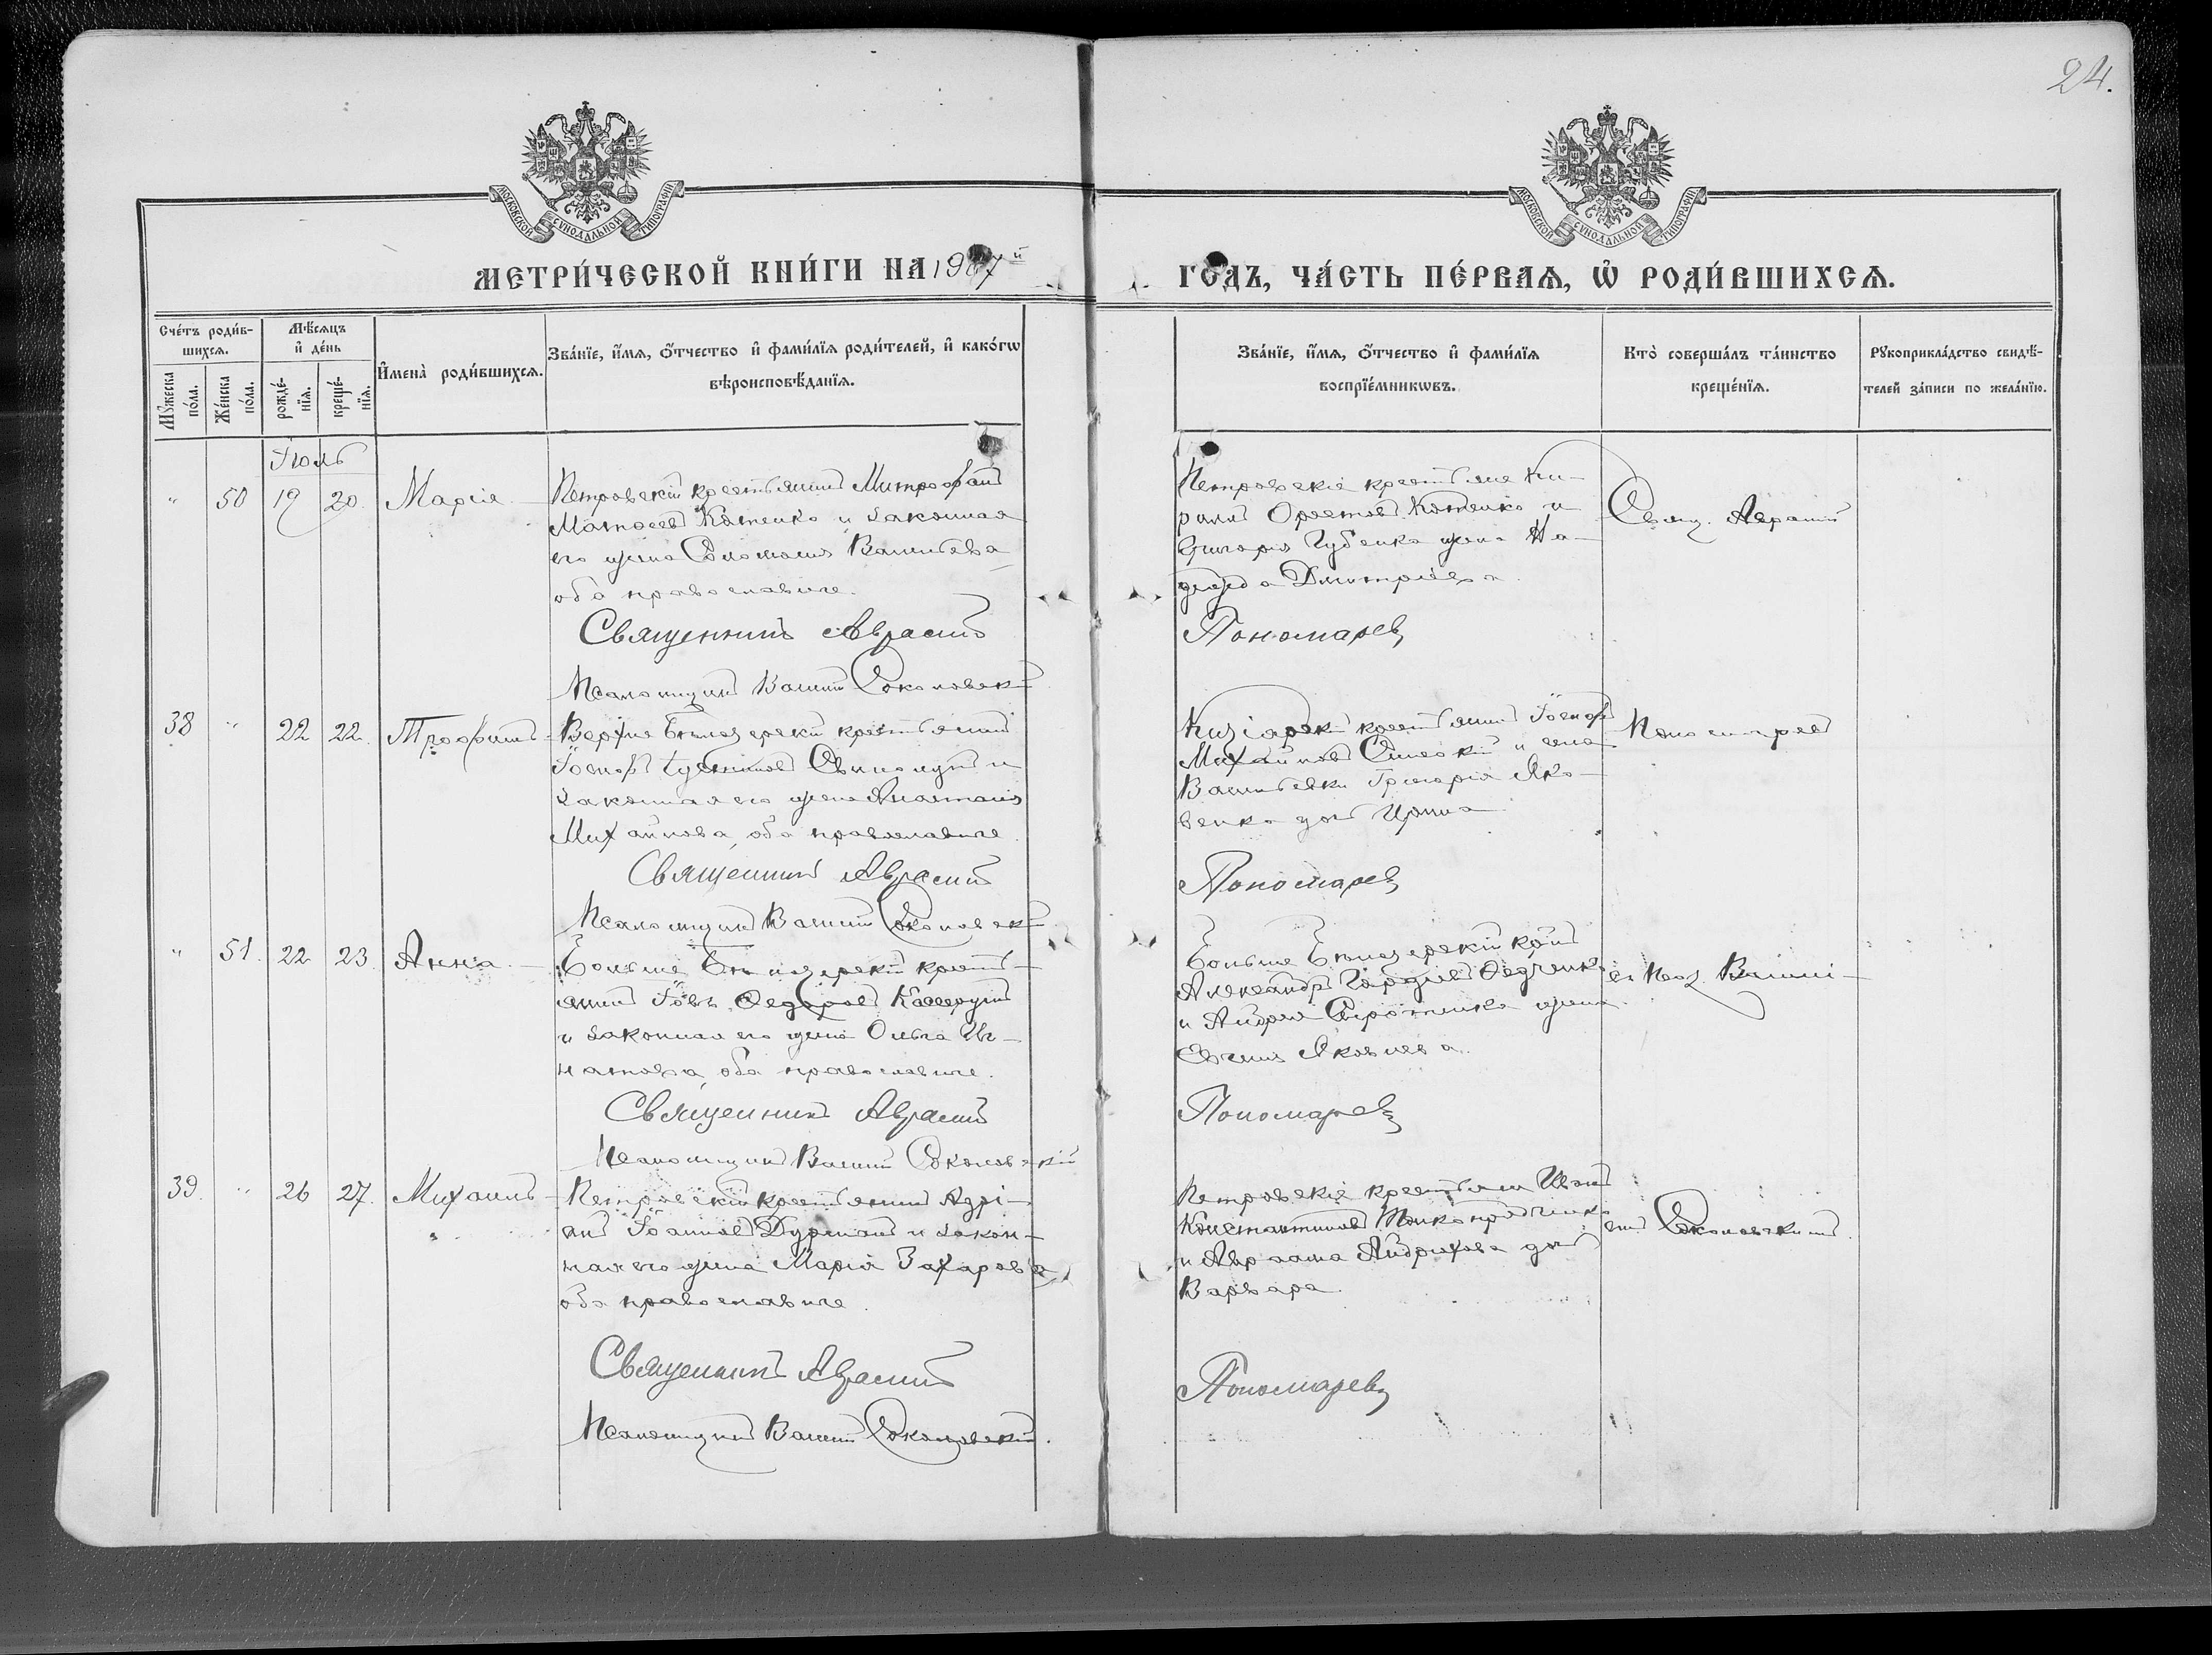 24.
МОСКОВСКОЙ СѴНОДАЛЬНОЙ ТИПОГРАФІИ
МОСКОВСКОЙ СѴНОДАЛЬНОЙ ТИПОГРАФІИ
МЕТРИ́ЧЕСКОЙ КНИ́ГИ НА 1907й
ГО́ДЪ, ЧА́СТЬ ПЕ́РВАѦ, Ѡ҆ РОДИ́ВШИХСѦ.
Сче́тъ роди́в-
шихсѧ.
Мꙋ́жеска
по́ла.
Же́нска
по́ла.
Мѣ́сѧцъ
и҆ де́нь
рожде́-
нїѧ.
креще́-
нїѧ.
И҆мена̀ роди́вшихсѧ.
Зва́нїе, и҆́мѧ, ѻ҆́тчество и҆ фами́лїѧ роди́телей, и҆ како́гѡ
вѣроисповѣ́данїѧ.
Зва́нїе, и҆́мѧ, ѻ҆́тчество и҆ фами́лїѧ
воспрїе́мникѡвъ.
Кто̀ соверша́лъ та́инство
креще́нїѧ.
Рꙋкоприкла́дство свидѣ́-
телей за́писи по жела́нїю.
Іюль
" 50 19 20. Марія
Петровскій крестьянинъ Митрофанъ
Матѳеевъ Котенко и законная
его жена Соломонія Васильева
оба православные.
Священникъ Аврасинъ
Псаломщикъ Василій Соколовскій
Петровскіе крестьяне Ки-
риллъ Орестовъ Котенко и
Григорія Губенка жена На-
дежда Дмитріева.
Пономаревъ
Свящ. Аврасинъ
38 " 22 22. Трофимъ
Верхне Бѣлозерскій крестьянинъ
Іосифъ Свинолупъ и
законная его жена Анастасія
Михайлова, оба православные.
Священникъ Аврасинъ
Псаломщикъ Василій Соколовскій
Іосифъ
Михайловъ и села
Васильевки Григорія Яко-
венка дочь Ирина
Пономаревъ
Пономаревъ
" 51. 22 23 Анна
Больше Бѣлозерскій кресть-
янинъ Іовъ Ѳедоровъ
и законная его жена Ольга Иг-
натова, оба православные.
Священникъ Аврасинъ
Псаломщикъ Василій Соколовскій
Больше Бѣлозерскій
Александръ Гордіевъ Ѳедченко
и Андрея Сиротенка жена
Евгенія Яковлева.
Пономаревъ
39. " 26 27. Михаилъ
Петровскій крестьянинъ Адрі-
анъ Іоанновъ Дурманъ и закон-
ная его жена Марія Захарова
оба православные.
Священникъ Аврасинъ
Псаломщикъ Василій Соколовскій.
Петровскіе крестьяне Иванъ
Константиновъ
и Авраама Андрихова дочь
Варвара.
Пономаревъ
Соколовскимъ.